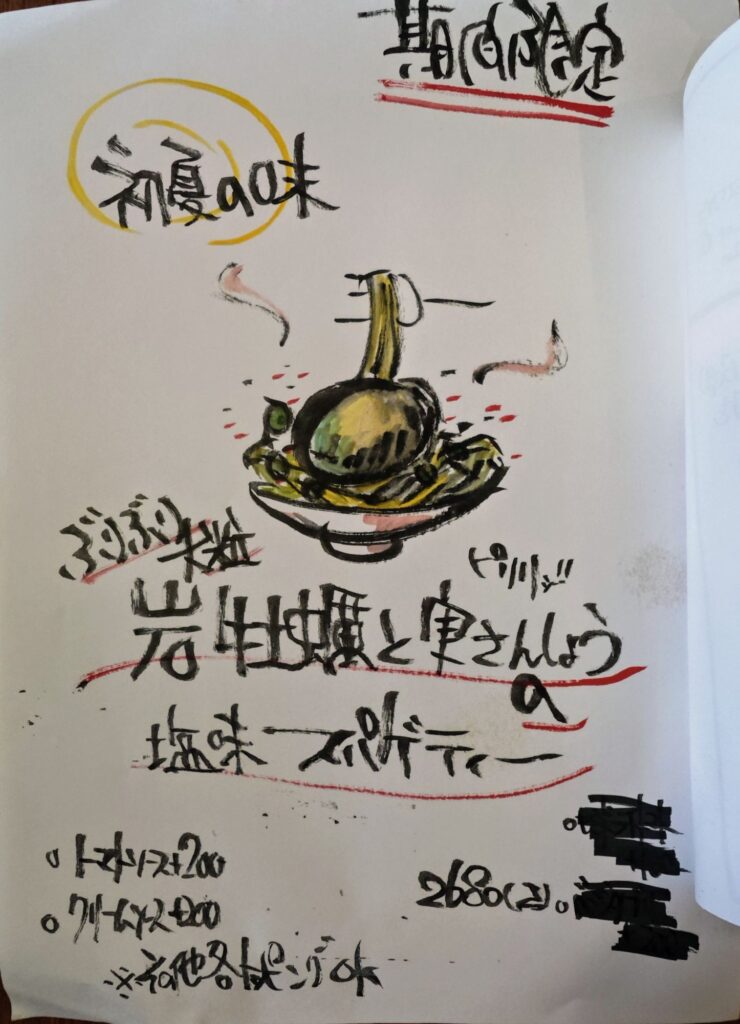 期間限定
初夏の味
ぷりぷり大粒
ピリリッ!!
岩牡蠣と実さんしょう
の
塩味スパゲティー
。トマトソース+200
。クリームソース+200
2680(込)
※その他各トッピング